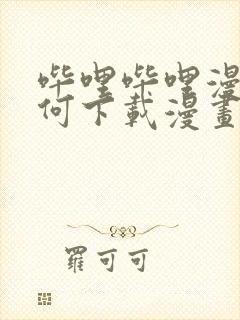 哔哩哔哩漫
何下載漫畫
羅可可